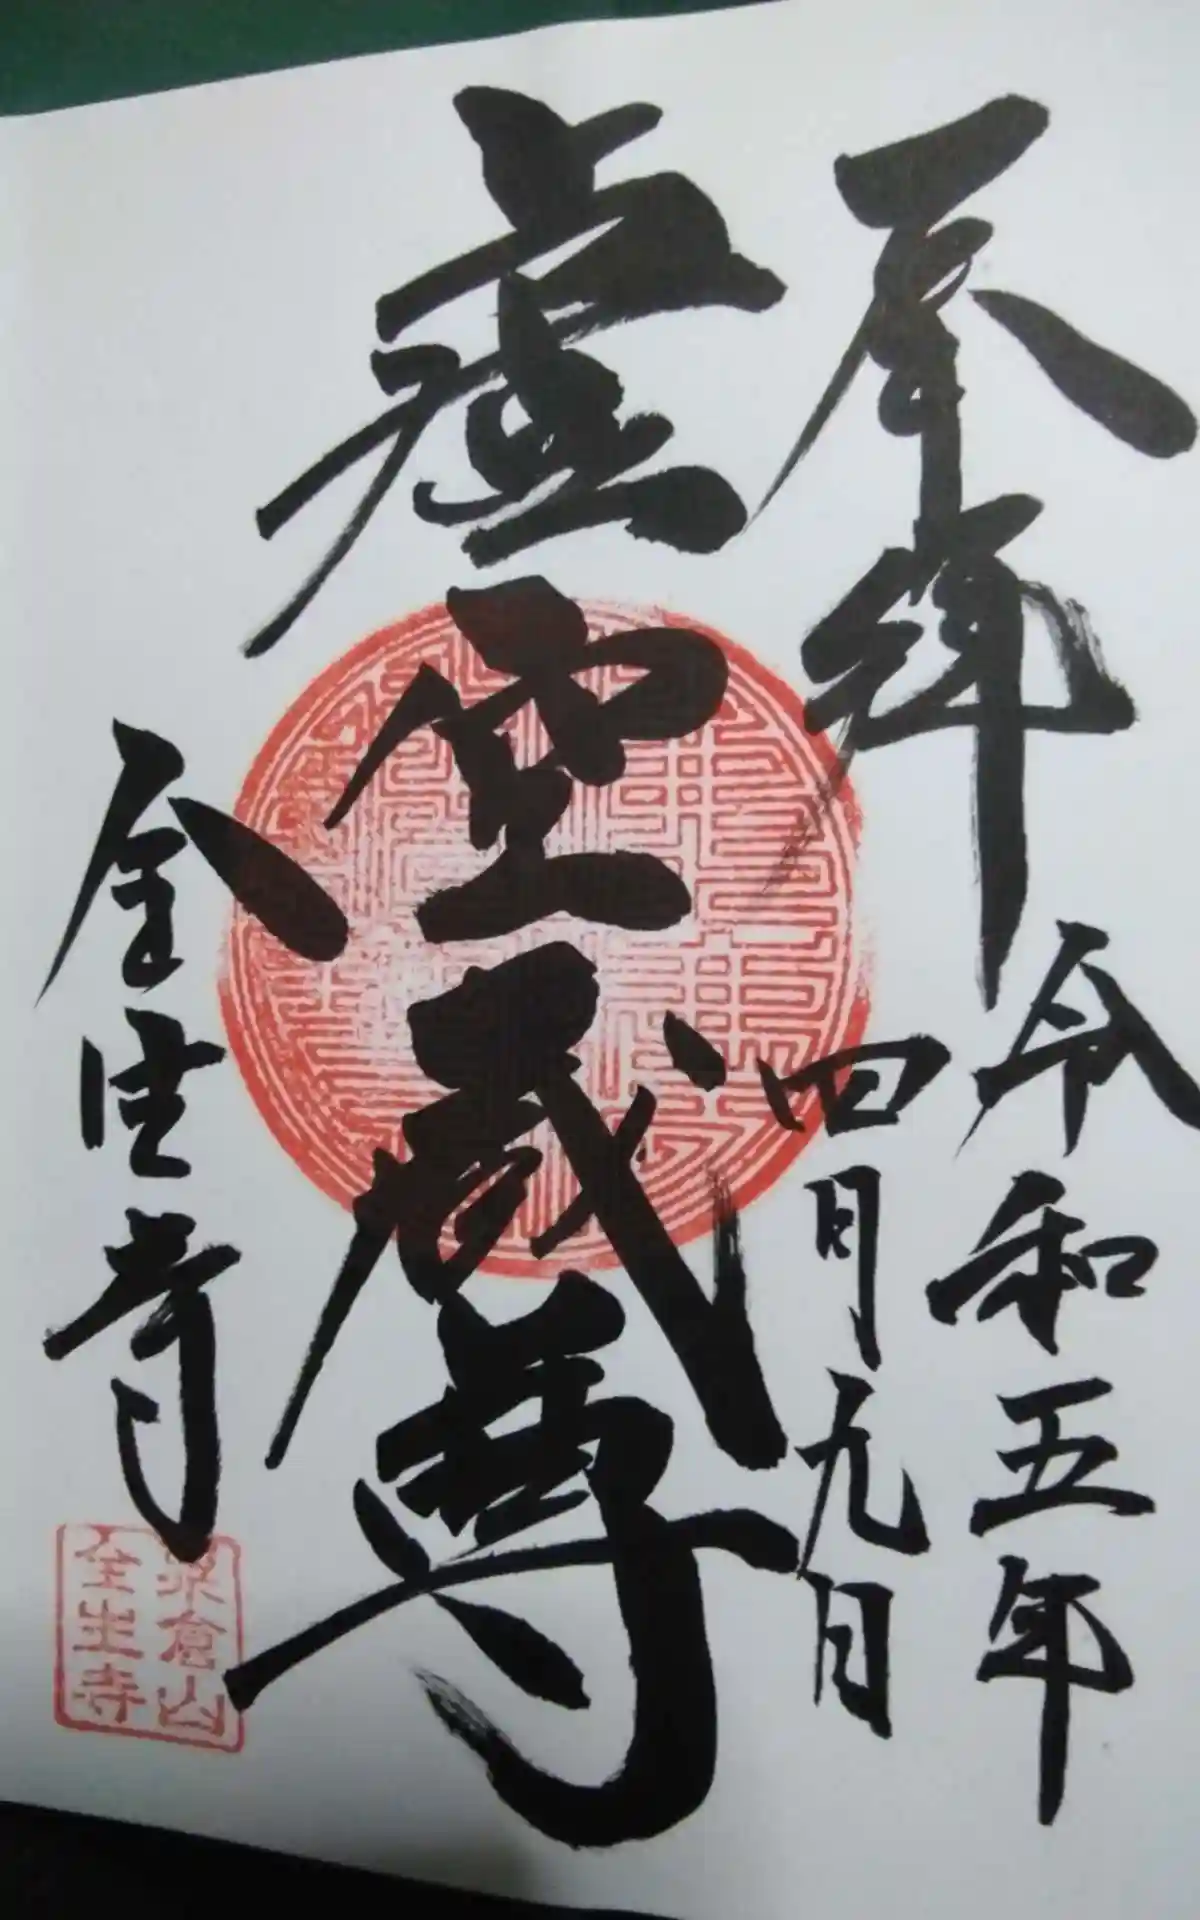 奉拝
令和五年
四月九日
虚空蔵尊
全生寺
倉山
全生寺